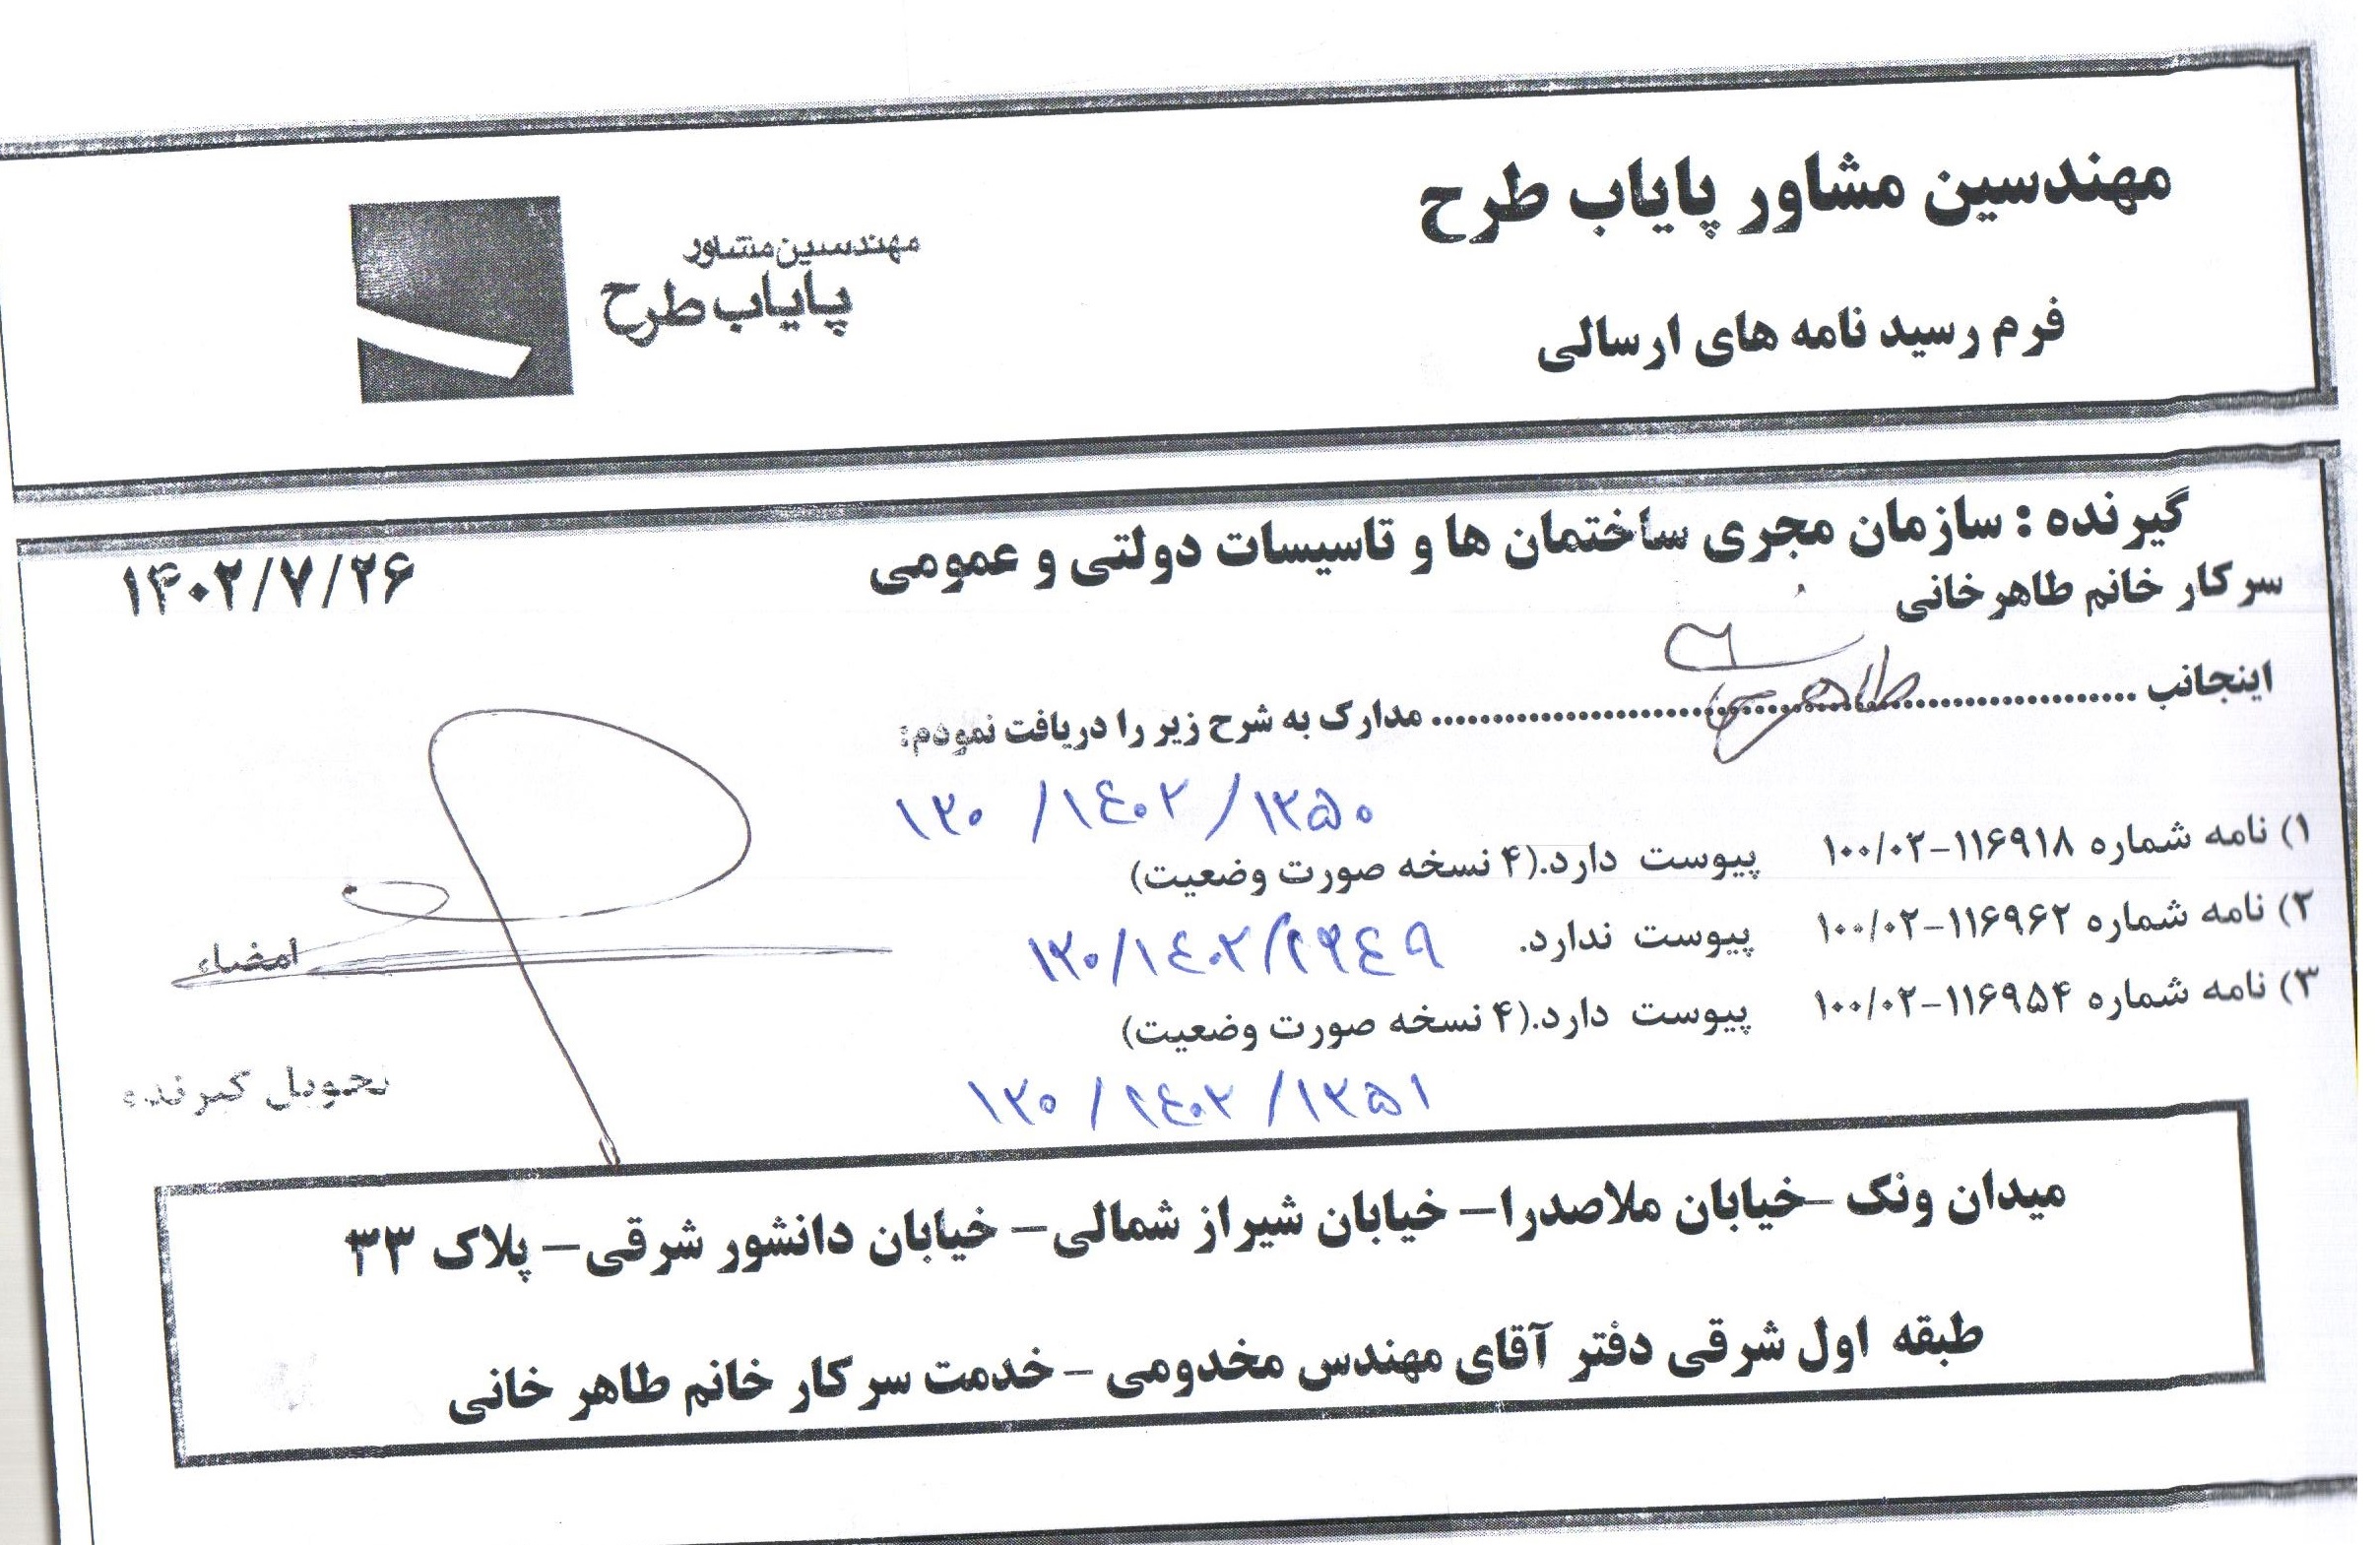 مهندسین مشاور پایاب طرح
مهندسین مشاور
پایاب طرح
فرم رسید نامه های ارسالی
گیرنده : سازمان مجری ساختمان ها و تاسیسات دولتی و عمومی
۱۴۰۲/۷/۲۶
سرکار خانم طاهرخانی
اینجانب ........................ طاهرخانی ........................ مدارک به شرح زیر را دریافت نمودم:
۱۲۰/۱۴۰۲/۱۲۵۰
۱) نامه شماره ۱۱۶۹۱۸-۱۰۰/۰۲ پیوست دارد.(۴ نسخه صورت وضعیت)
۲) نامه شماره ۱۱۶۹۶۲-۱۰۰/۰۲ پیوست ندارد.
امضاء
۳) نامه شماره ۱۱۶۹۵۴-۱۰۰/۰۲ پیوست دارد.(۴ نسخه صورت وضعیت)
تحویل گیرنده
۱۲۰/۱۴۰۲/۱۲۵۱
میدان ونک –خیابان ملاصدرا– خیابان شیراز شمالی– خیابان دانشور شرقی– پلاک ۳۳
طبقه اول شرقی دفتر آقای مهندس مخدومی – خدمت سرکار خانم طاهر خانی